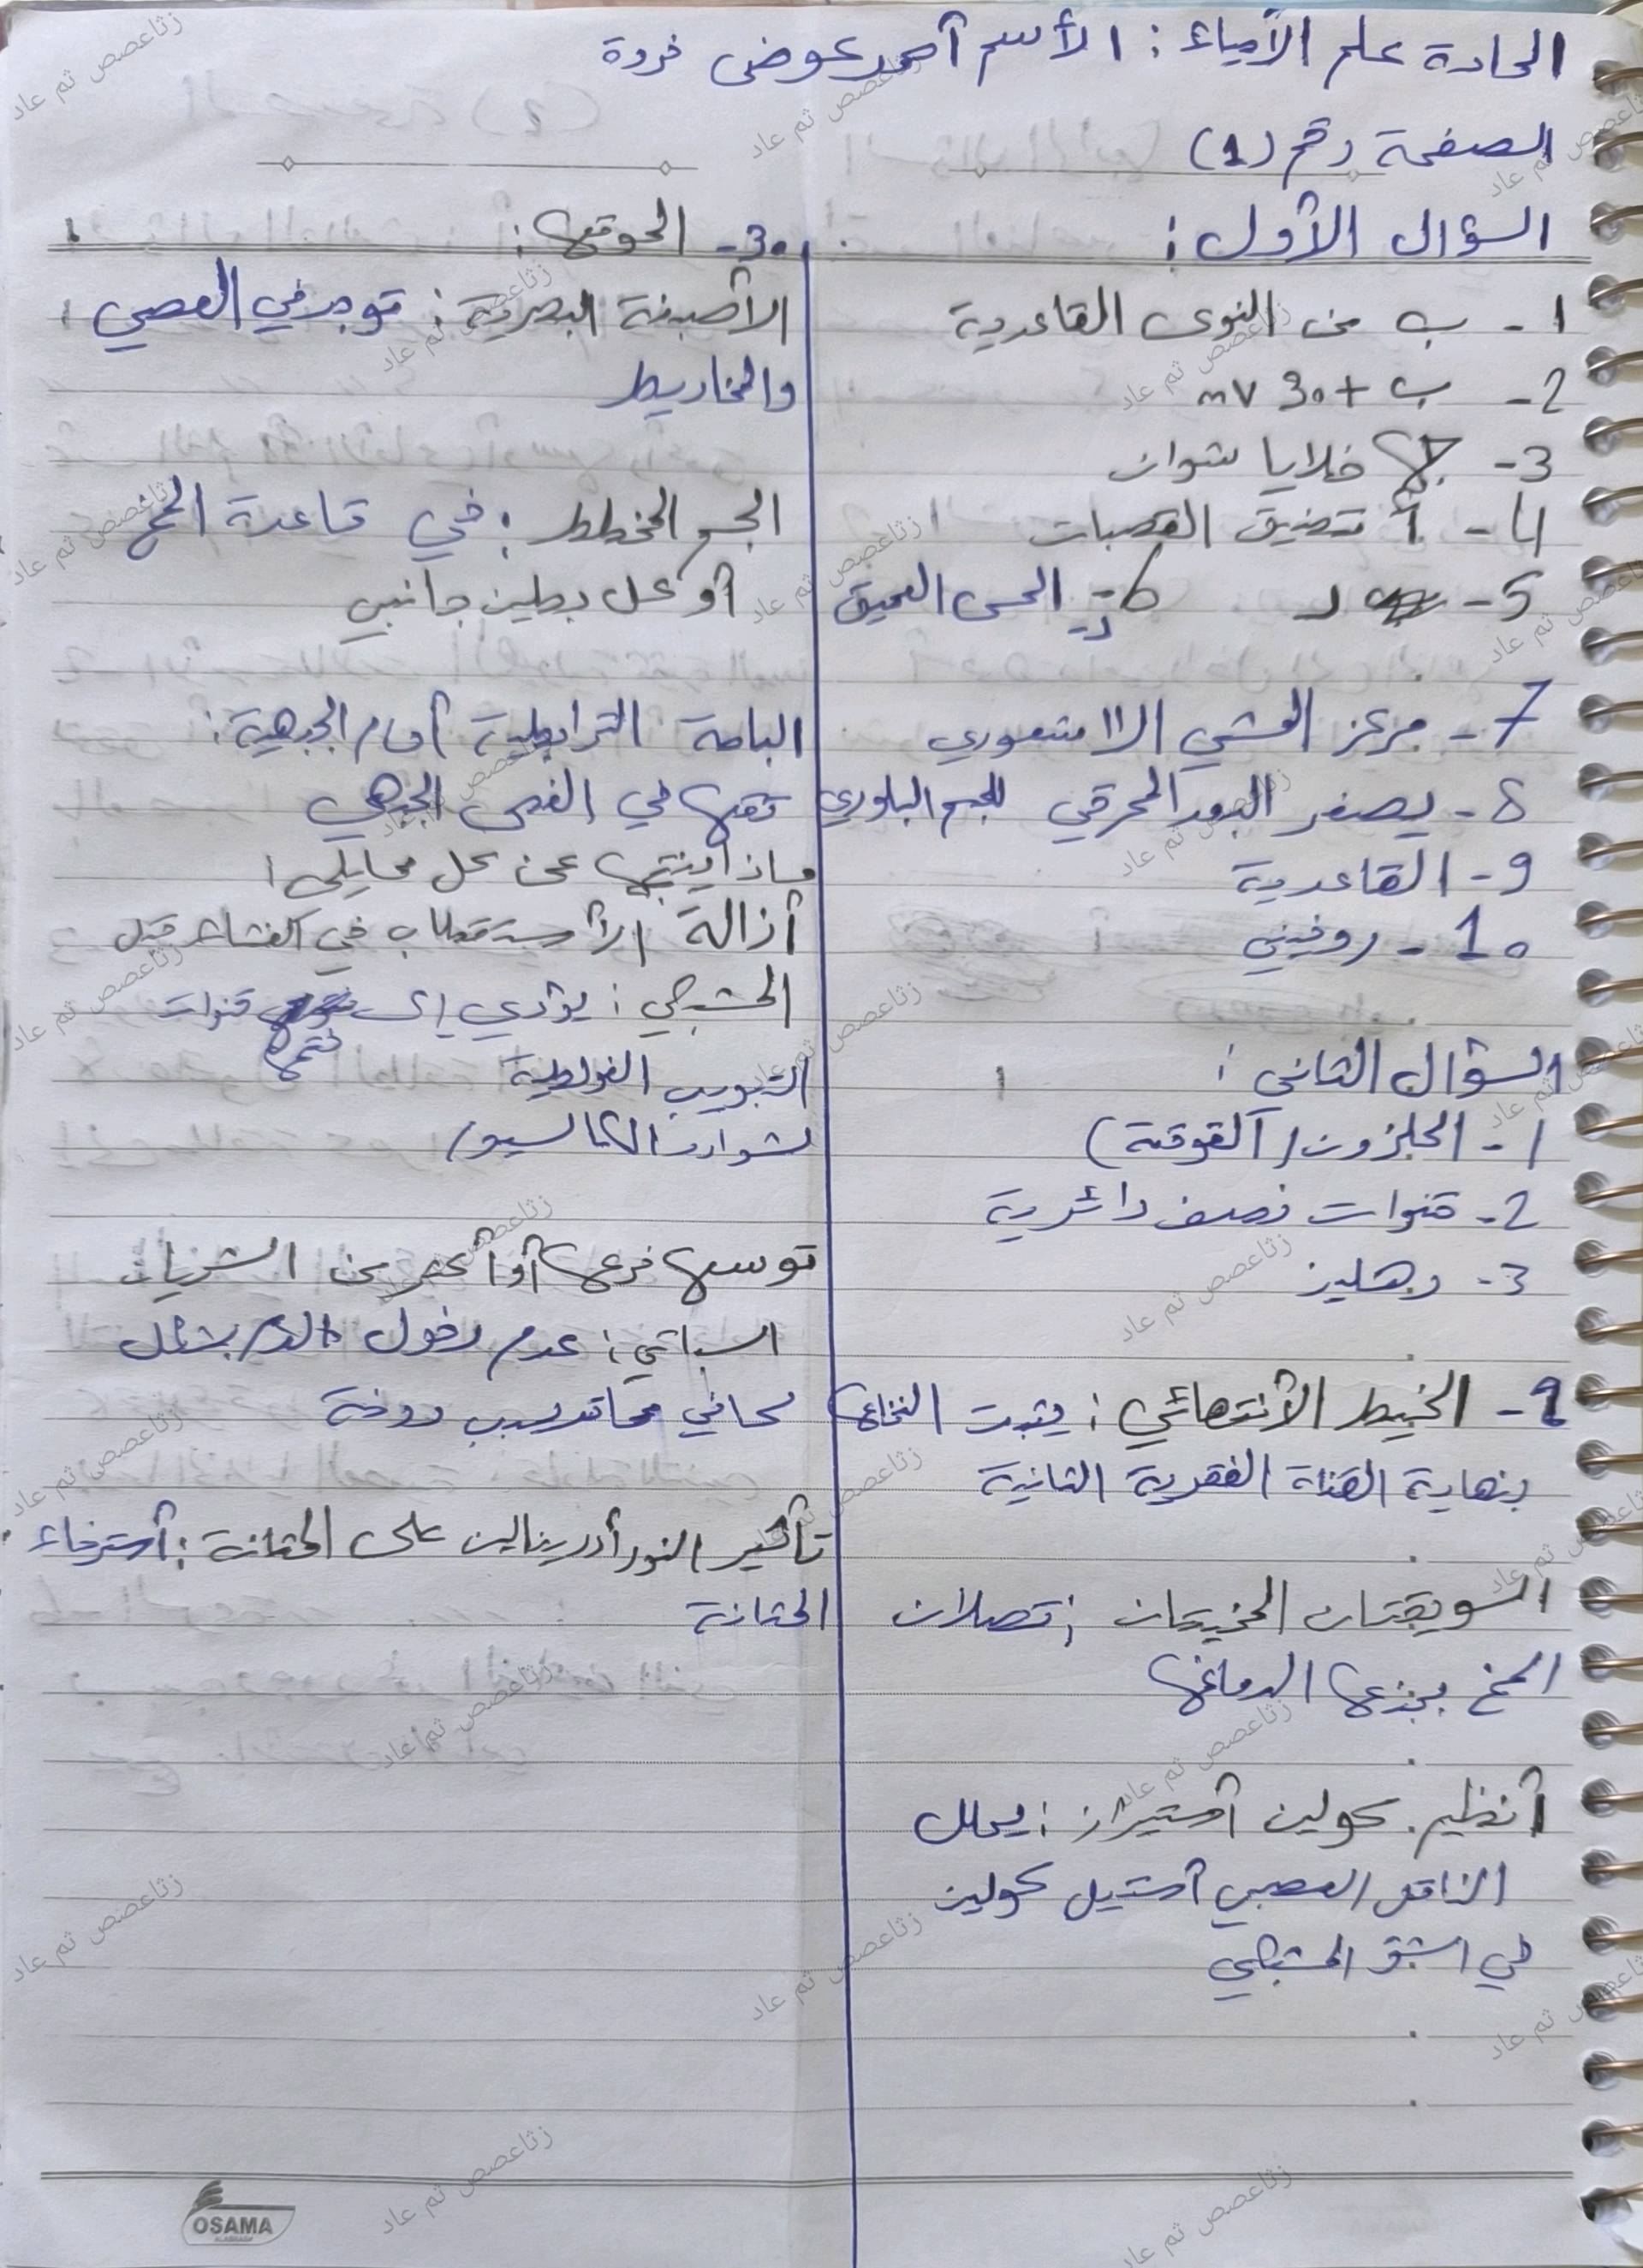 المادة علم الأحياء : الأسم أحمد عوض فروة
الصفحة رقم (1)
السؤال الأول :
1- ب من النوى القاعدية
2- ب + 30 mv
3- ج خلايا شوان
4- أ تضيق القصبات
5- د
6- د- الحس العميق
7- مركز المشي اللاشعوري
8- يصغر البعد المحرقي للجسم البلوري
9- القاعدية
10- روفيني
السؤال الثاني :
1- الحلزون (القوقعة)
2- قنوات نصف دائرية
3- دهليز
2- الخيط الأنتهائي : يثبت النخاع
بنهاية القناة الفقرية الثانية
السويقتان المخيتان : تصلان
المخ بجذع الدماغ
أنظيم كولين أستيراز : يحلل
الناقل العصبي أستيل كولين
في الشق المشبكي
3- الموقع :
الأصبغة البصرية : توجد في العصي
والمخاريط
الجسم المخطط : في قاعدة المخ
أو كل بطين جانبي
الباحة الترابطية أمام الجبهية :
تقع في الفص الجبهي
ماذا ينتج عن كل مما يلي :
أزالة الأستقطاب في الغشاء قبل
المشبكي : يؤدي إلى فتح قنوات
التبويب الفولطية
لشوارد الكالسيوم
توسع فرع أو أكثر من الشريان
السباتي : عدم دخول الدم بشكل
كافي مما تسبب دوخة
تأثير النورأدرينالين على المثانة : أسترخاء
المثانة
OSAMA
زثاعصص ثم عاد